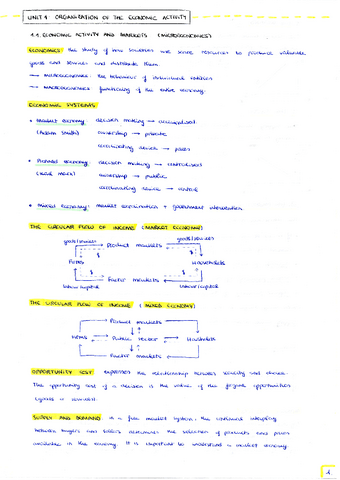 UNIT 1 ORGANIZATION OF THE ECONOMIC ACTIVITY
1.1. ECONOMIC ACTIVITY AND MARKETS (MICROECONOMICS)
ECONOMICS: the study of how societies use scarce resources to produce valuable
goods and services and distribute them.
→ MICROECONOMICS: the behaviour of individual entities
→ MACROECONOMICS: functioning of the entire economy.
ECONOMIC SYSTEMS
• Market economy: decision making → decentralised
(Adam Smith) ownership → private
coordinating device → prices
• Planned economy: decision making → centralised
(Karl Marx) ownership → public
coordinating device →
• Mixed economy: market organization + government intervention
THE CIRCULAR FLOW OF INCOME (MARKET ECONOMY)
goods/services Product markets goods/services
$ $
Firms Households
$ $
labour/capital Factor markets labour/capital
THE CIRCULAR FLOW OF INCOME (MIXED ECONOMY)
Product markets
Firms Public sector Households
Factor markets
OPPORTUNITY COST: expresses the relationship between scarcity and choice.
The opportunity cost of a decision is the value of the forgone opportunities
SUPPLY AND DEMAND: in a free market system, the continued interplay
between buyers and sellers determines the selection of products and prices
available in the economy. It is important to understand a market economy.
1